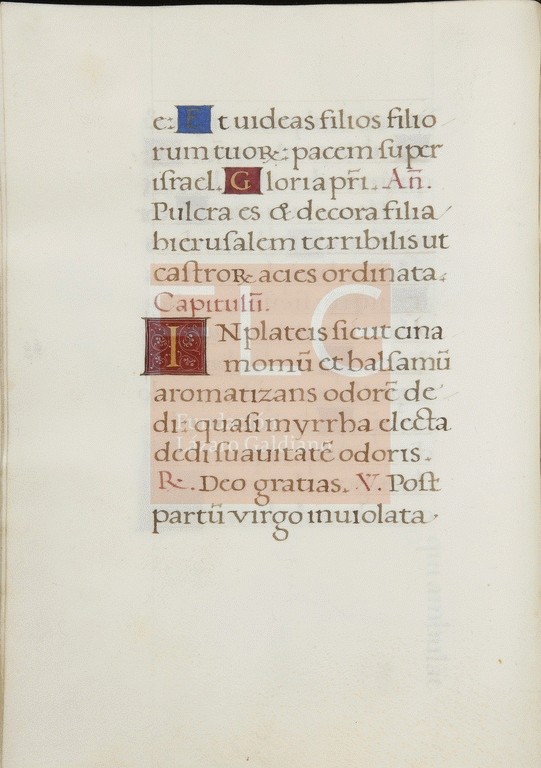 e: Et uideas filios filio
rum tuoꝝ: pacem super
israel. Gloria pr̃i. Añ.
Pulcra es & decora filia
hierusalem terribilis ut
castroꝝ acies ordinata.
Capitulũ.
IN plateis sicut cina
momũ et balsamũ
aromatizans odorẽ de
di: quasi myrrha electa
dedi suauitatẽ odoris.
R. Deo gratias. V. Post
partũ virgo inuiolata
FLG
Fundación
Lázaro Galdiano